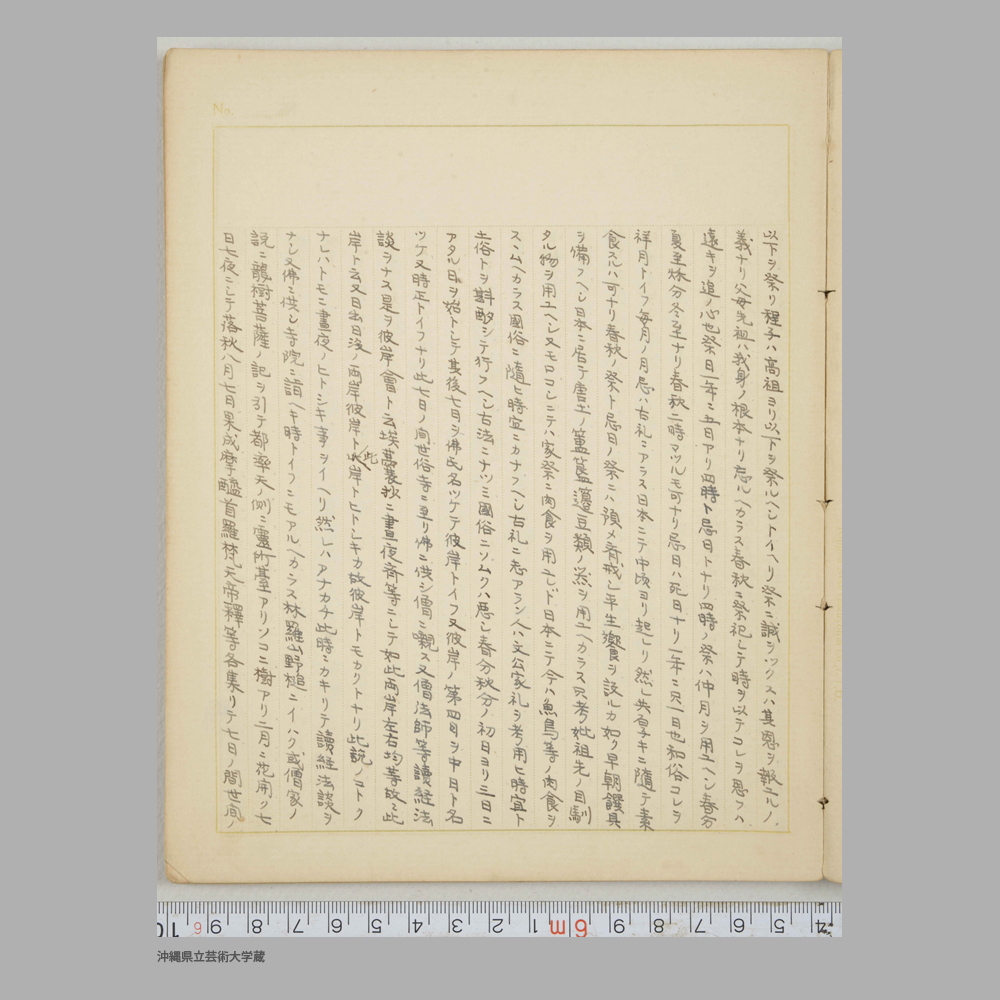 No.
以下ヲ祭リ程子ハ高祖ヨリ以下ヲ祭ルヘシトイヘリ祭ニ誠ヲツクスハ其恩ヲ報ユルノ
義ナリ父母先祖ハ我身ノ根本ナリ忘ルヘカラス春秋ニ祭祀シテ時ヲ以テコレヲ思フハ
遠キヲ追ノ心也祭日一年ニ五日アリ四時ト忌日トナリ四時ノ祭ハ仲月ヲ用ユヘシ春分
夏至秋分冬至ナリ春秋二時マツルモ可ナリ忌日ハ死日ナリ一年ニ只一日也和俗コレヲ
祥月トイフ毎月ノ月忌ハ古礼ニアラス日本ニテ中頃ヨリ起レリ然レ共旦キニ隨テ素
食スルハ可ナリ春秋ノ祭ト忌日ノ祭ニハ預メ斉戒シ平生饗ヲ設ルカ如ク早朝饌具
ヲ備フヘシ日本ニ居テ唐土ノ簠簋籩豆類ノ器ヲ用ユヘカラス只考妣祖先ノ目馴
タル物ヲ用ユヘシ又モロコシニテハ家祭ニ肉食ヲ用ユレド日本ニテ今ハ魚鳥等ノ肉食ヲ
スヽムヘカラス國俗ニ隨ヒ時宜ニカナフヘシ古礼ニ志アラン人ハ文公家礼ヲ考用ヒ時宜ト
土俗トヲ斟酌シテ行フヘシ古法ニナツミ國俗ニソムクハ悪シ春分秋分ノ初日ヨリ三日ニ
アタル日ヲ始トシテ其後七日ヲ佛氏名ツケテ彼岸トイフ又彼岸ノ第四日ヲ中日ト名
ツケ又時正トイフナリ此七日ノ間世俗寺ニ至リ佛ニ供シ僧ニ嚫ス又僧法師等讀経法
談ヲナス是ヲ彼岸會ト云埃嚢抄ニ晝夜斉等ニシテ如此両岸左右均等故ニ此
岸ト云又日出日没ノ両岸彼岸ト此岸トヒトシキカ故彼岸トモカクトナリ此説ノコトク
此
ナレハトモニ晝夜ノヒトシキ事ヲイヘリ然レハアナカチ此時ニカキリテ讀経法談ヲ
ナシ又佛ニ供シ寺院ニ詣ヘキ時トイフニモアルヘカラス林羅山野槌ニイハク或僧家ノ
説ニ龍樹菩薩ノ記ヲ引テ都率天ノ側ニ靈所臺アリソコニ樹アリ二月ニ花開ク七
日七夜ニシテ落秋八月七日果成摩醯首羅梵天帝釋等各集リテ七日ノ間世間ノ
10 9 8 7 6 5 4 3 2 1 6m 9 8 7 6 5 4
沖縄県立芸術大学蔵